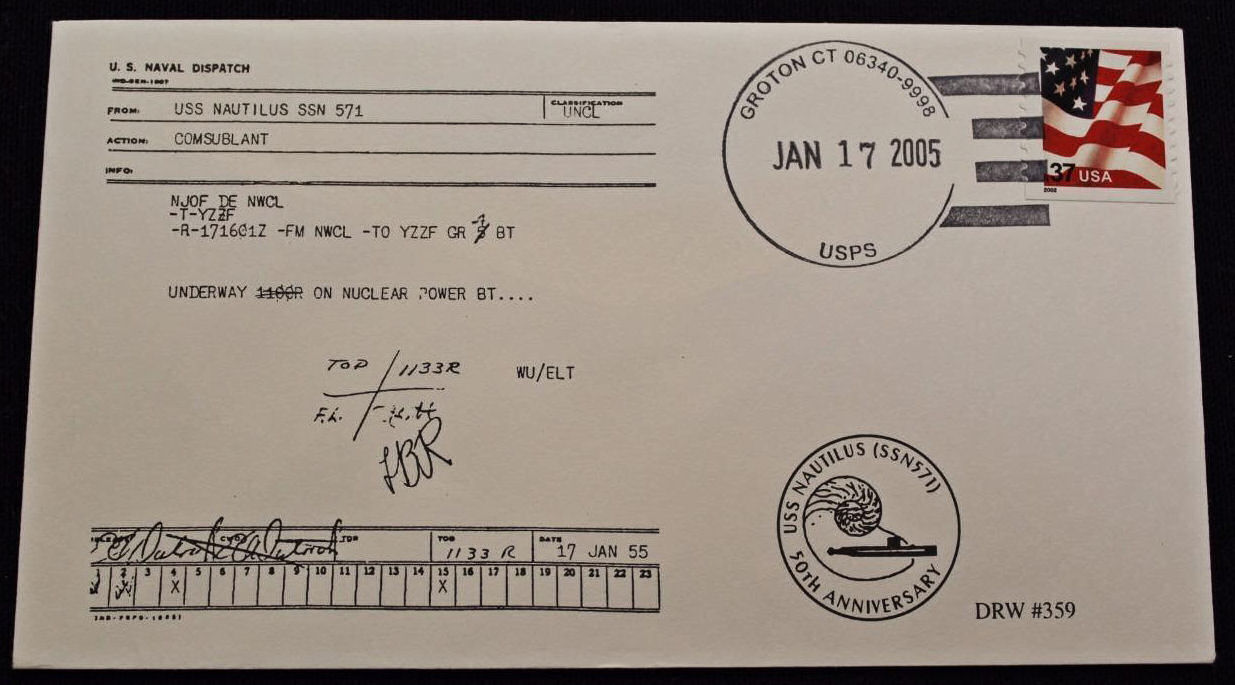 U. S. NAVAL DISPATCH
FROM: USS NAUTILUS SSN 571 CLASSIFICATION UNCL
ACTION: COMSUBLANT
INFO:
NJOF DE NWCL
-T-YZZF
-R-171601Z -FM NWCL -TO YZZF GR 7 BT
UNDERWAY 1100R ON NUCLEAR POWER BT....
TOD / 1133R WU/ELT
TOD 1133 R DATE 17 JAN 55
2 3 4 5 6 7 8 9 10 11 12 13 14 15 16 17 18 19 20 21 22 23
X X
GROTON CT 06340-9998
JAN 17 2005
USPS
37 USA
2002
USS NAUTILUS (SSN571)
50TH ANNIVERSARY
DRW #359